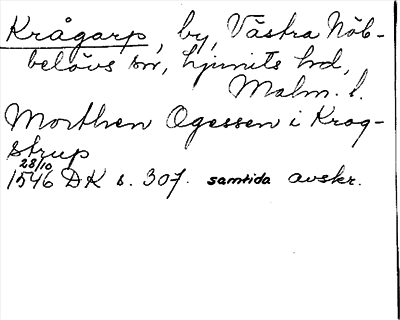 Krågarp, by, Västra Nöb-
belövs sn, Ljunits hd,
Malm. l.
Morthen Ogessen i Krog-
strup
28/10
1546 DK s. 307. samtida avskr.